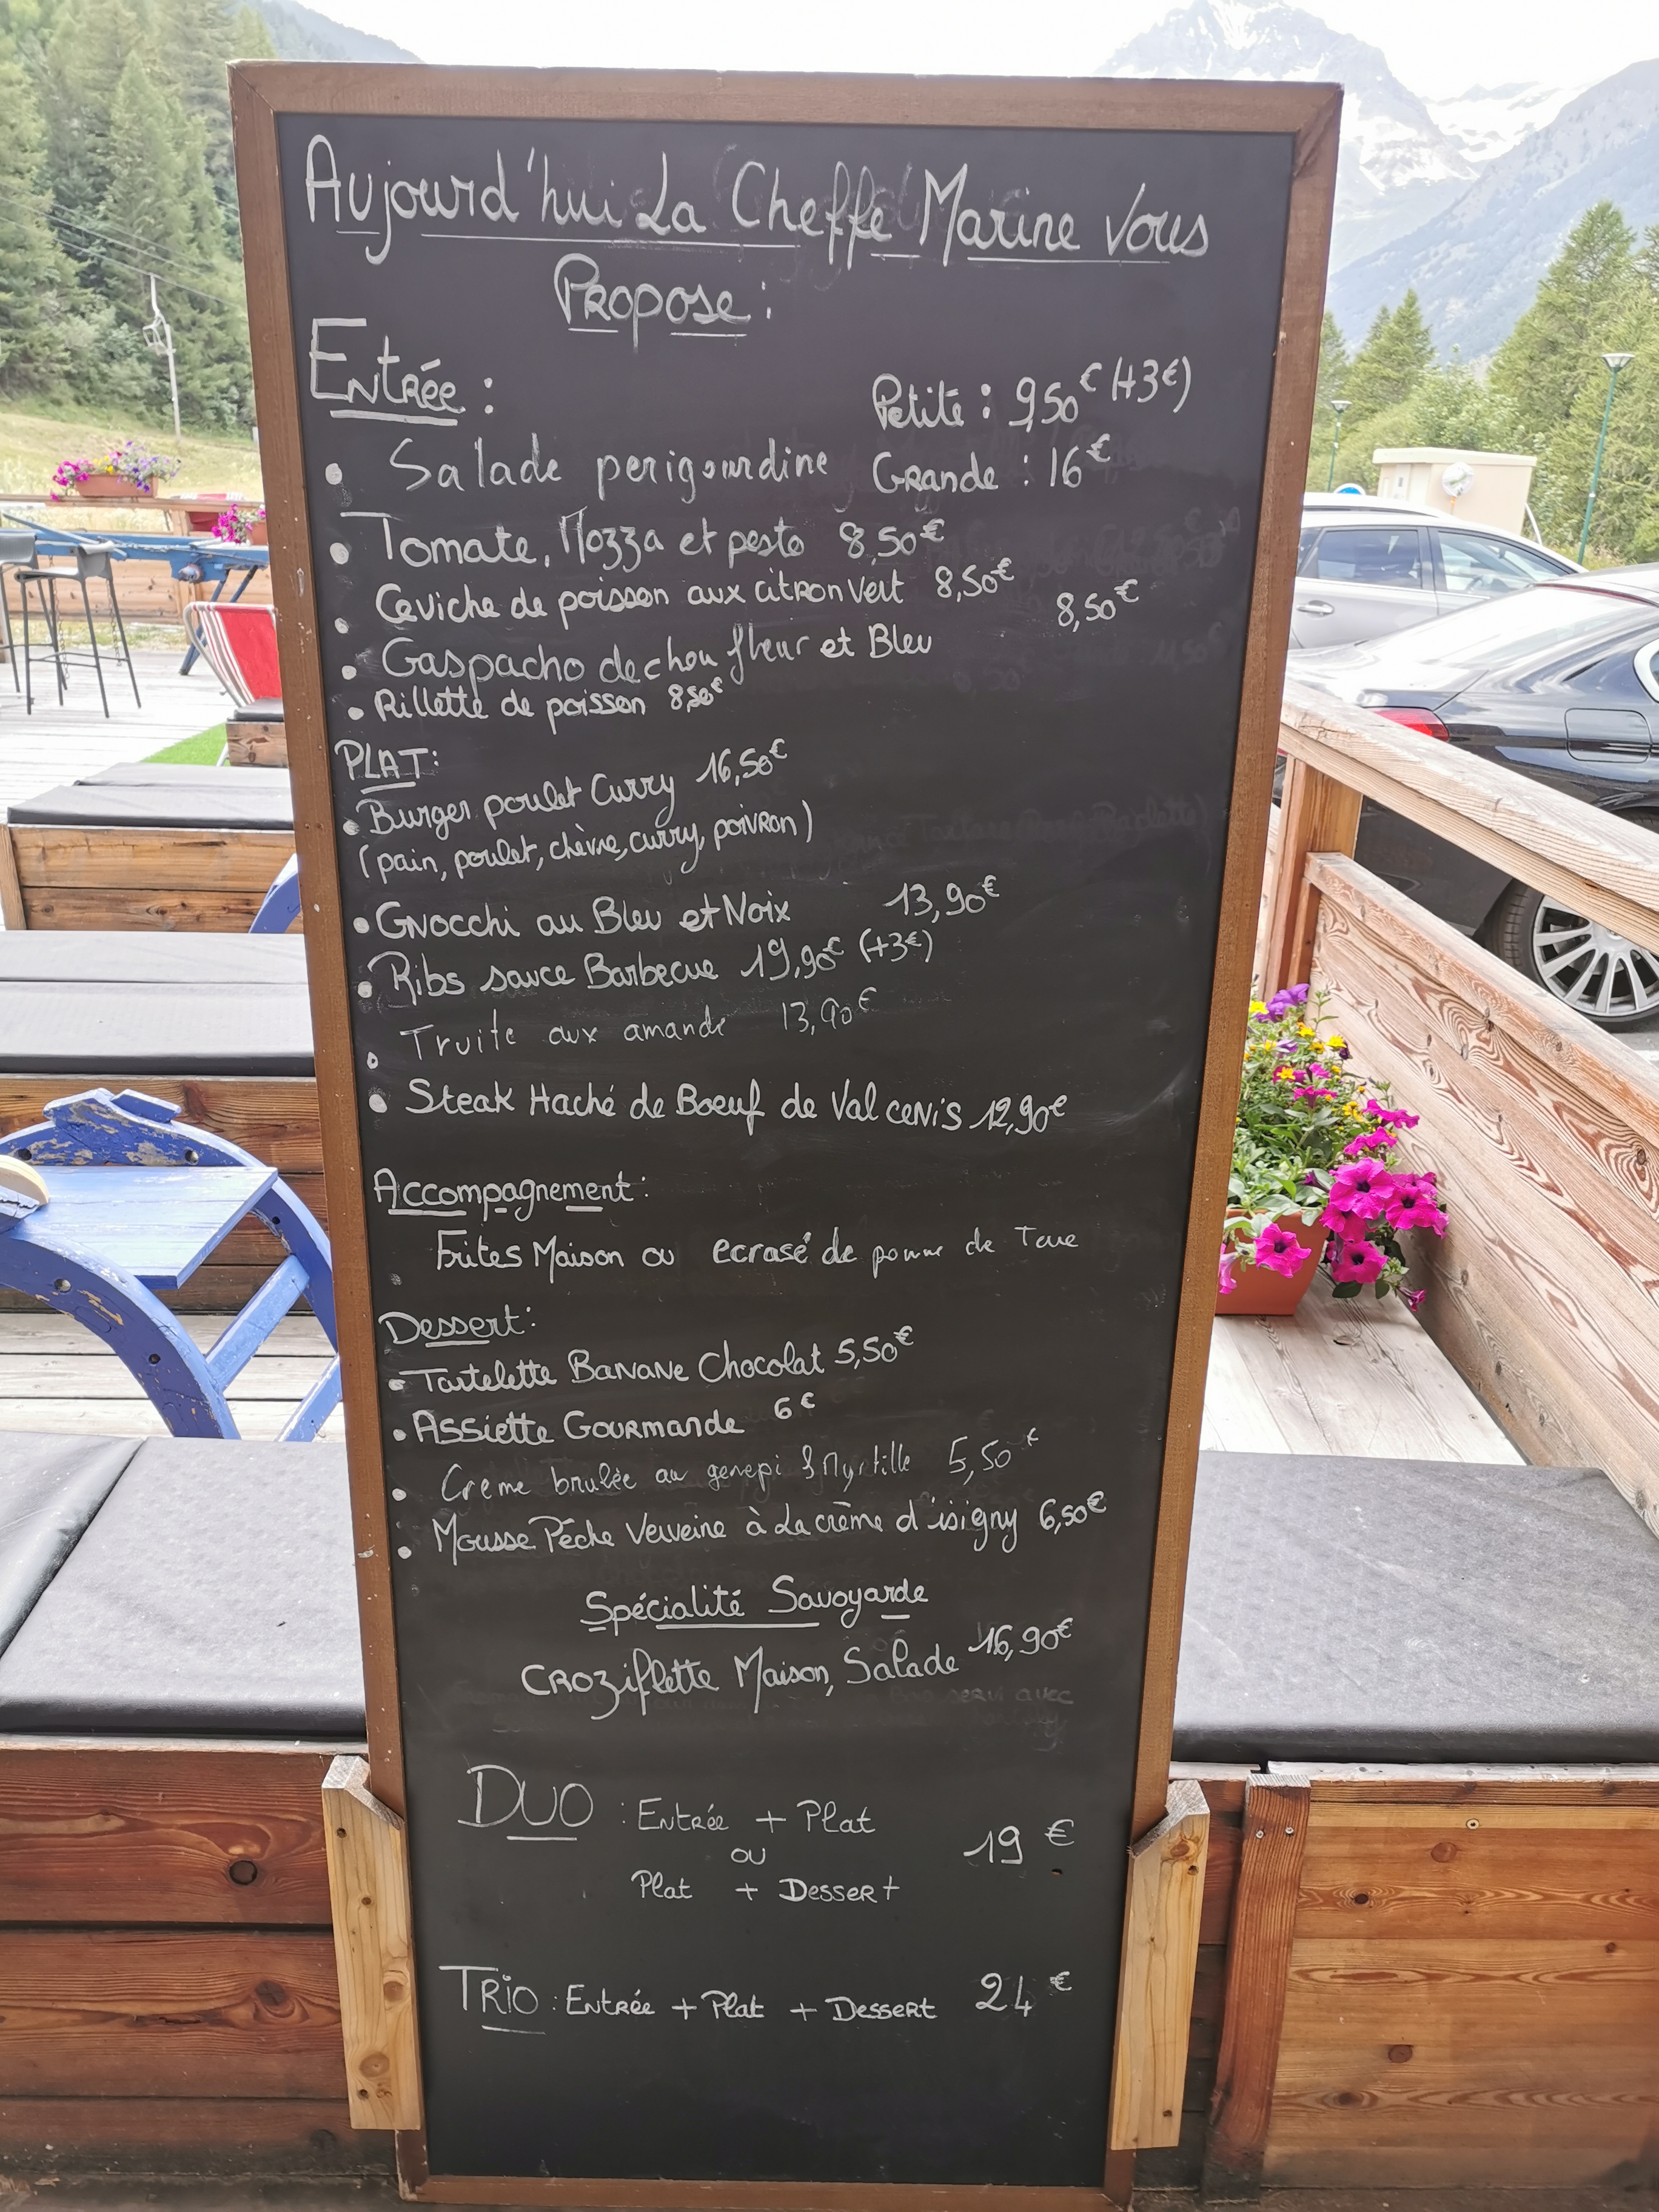 Aujourd'hui La Cheffe Marine Vous
Propose :
Entrée :
Petite : 9,50€ (+3€)
• Salade perigourdine Grande : 16€
• Tomate, Mozza et pesto 8,50€
• Ceviche de poisson aux citron Vert 8,50€
• Gaspacho de chou fleur et Bleu 8,50€
• Rillette de poisson 8,50€
PLAT :
• Burger poulet Curry 16,50€
(pain, poulet, chèvre, curry, poivron)
• Gnocchi au Bleu et Noix 13,90€
• Ribs sauce Barbecue 19,90€ (+3€)
• Truite aux amande 13,90€
• Steak Haché de Boeuf de Val cenis 12,90€
Accompagnement :
• Frites Maison ou ecrasé de pomme de Terre
Dessert :
• Tartelette Banane Chocolat 5,50€
• Assiette Gourmande 6€
• Creme brulée au genepi & Myrtille 5,50€
• Mousse Pêche Verveine à La crème d'isigny 6,50€
Spécialité Savoyarde
Croziflette Maison, Salade 16,90€
DUO : Entrée + Plat
ou
19€
Plat + Dessert
TRIO : Entrée + Plat + Dessert 24€